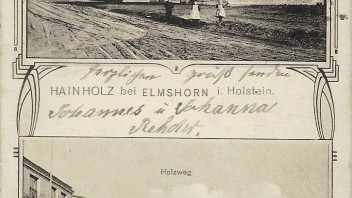 Herzlichen Gruß senden
HAINHOLZ bei ELMSHORN i. Holstein.
Johannes u Johanna
Rehder.
Holzweg